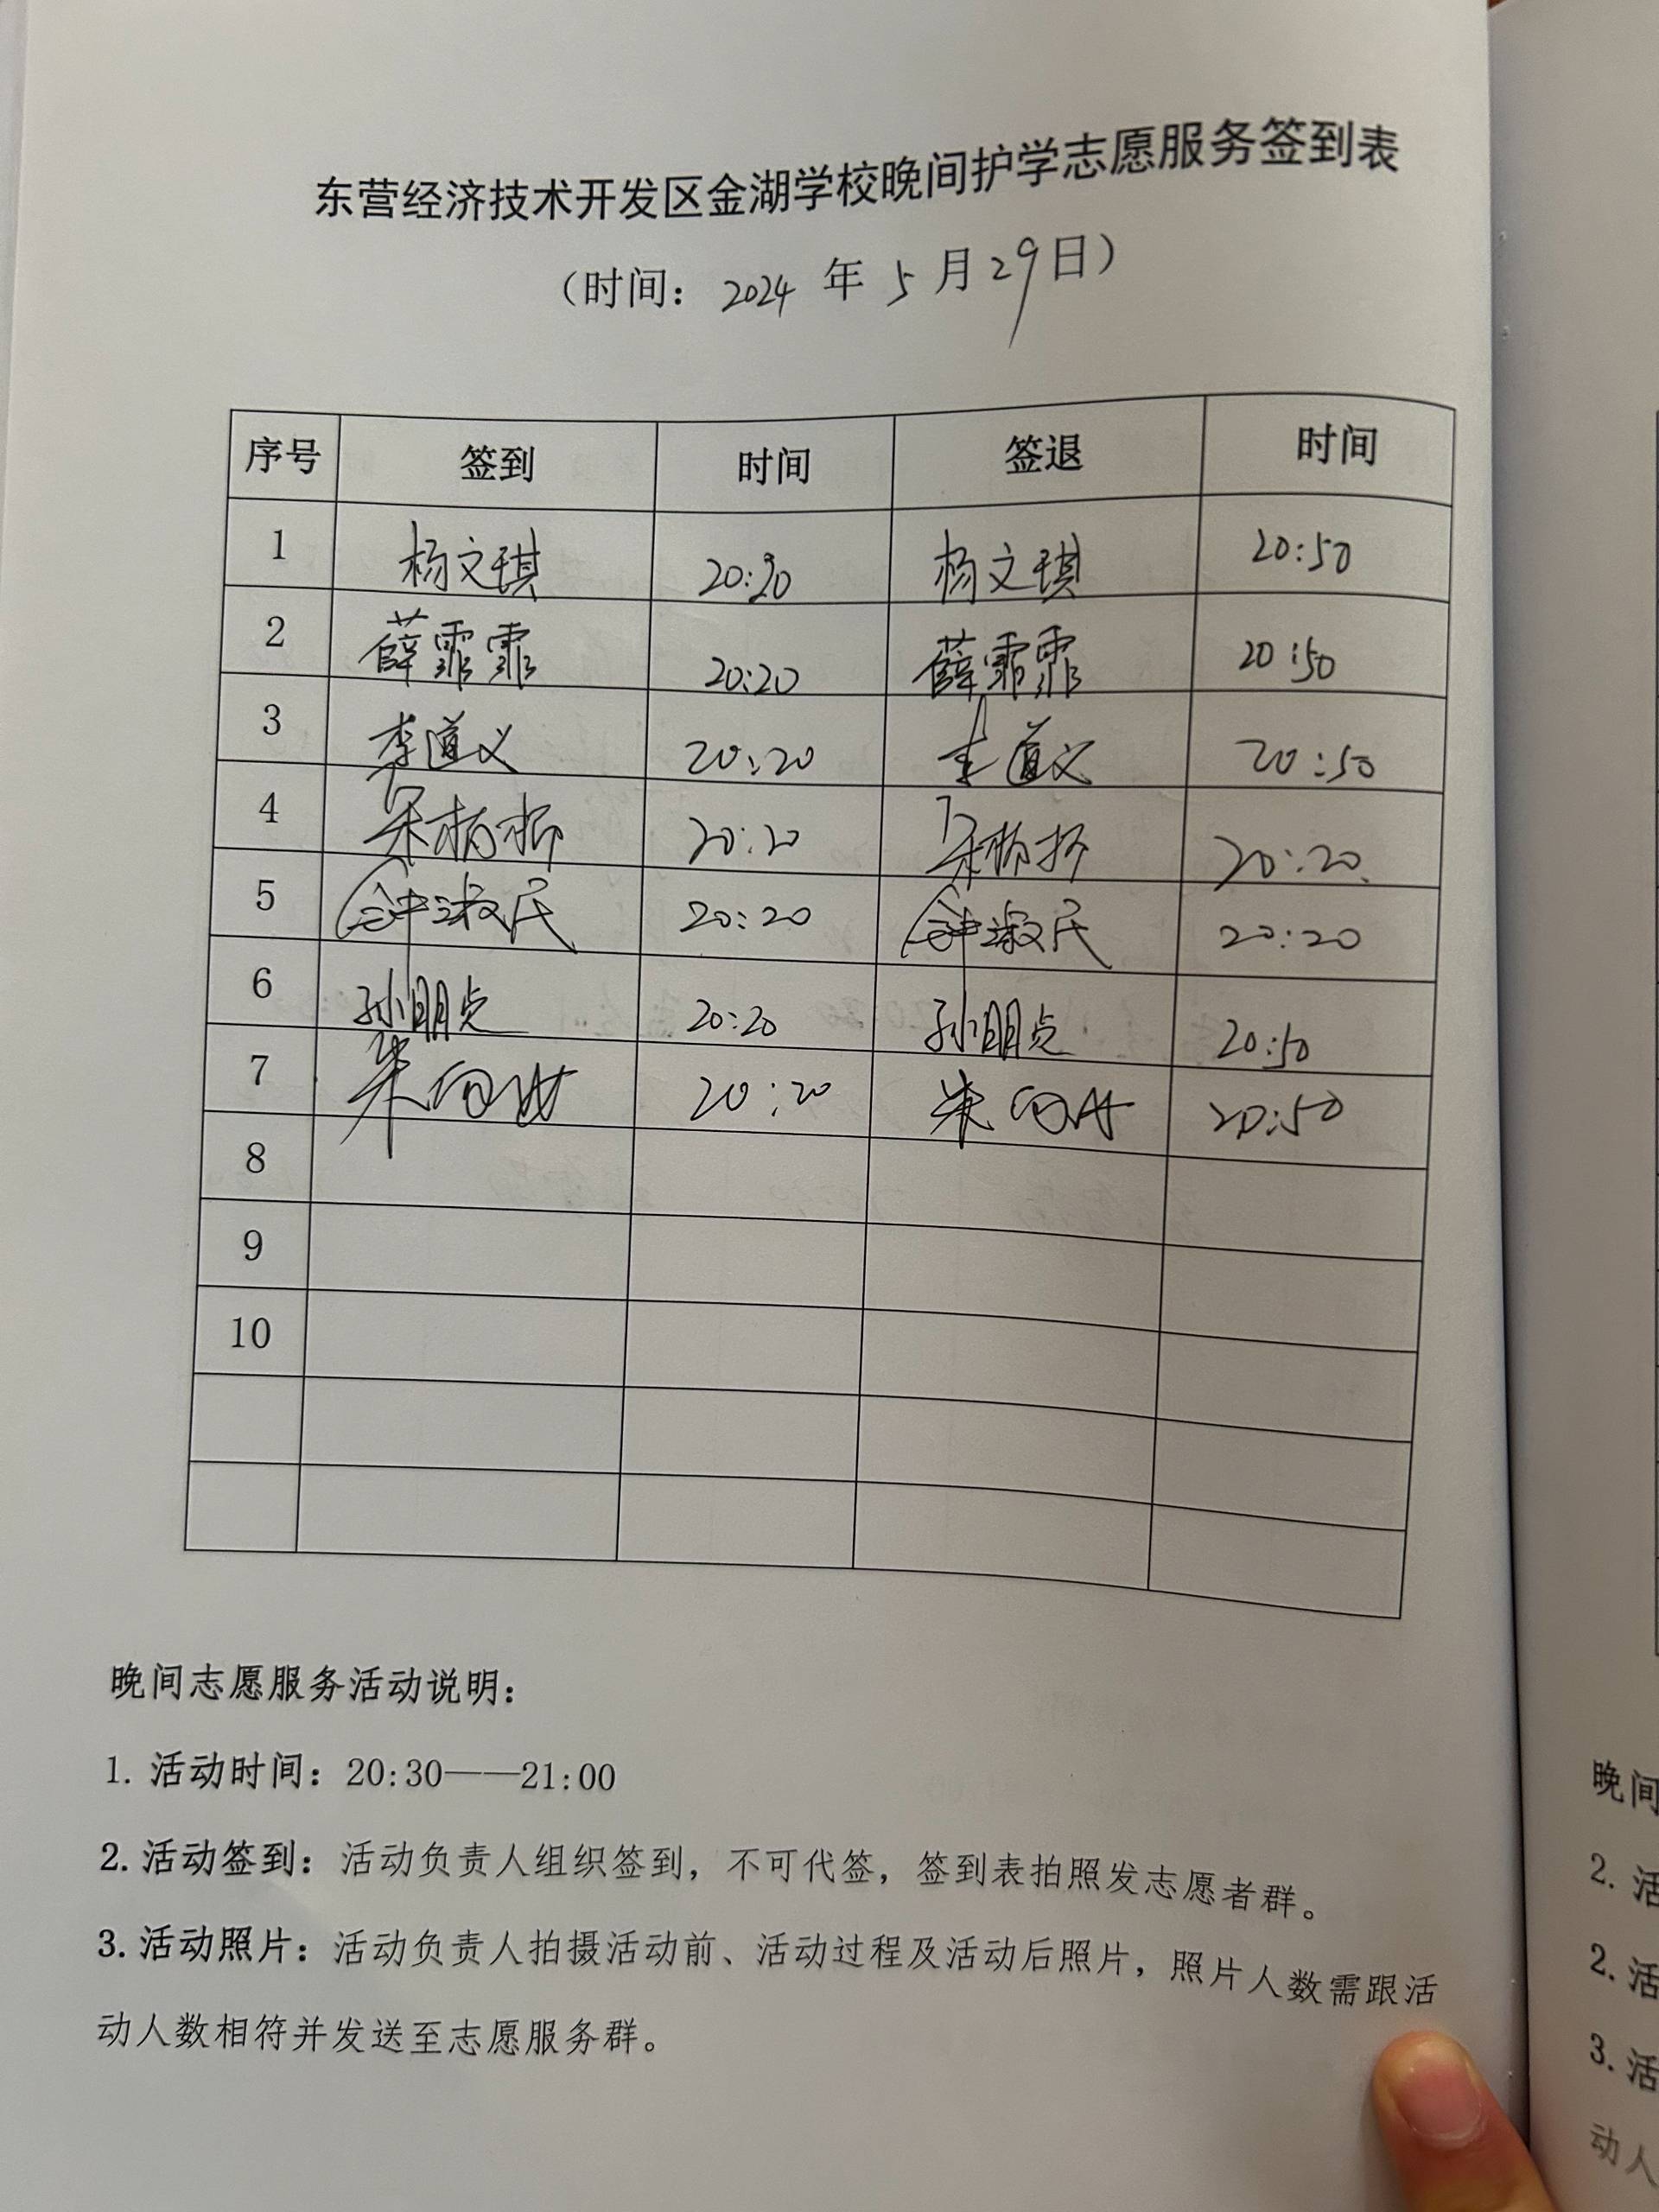 东营经济技术开发区金湖学校晚间护学志愿服务签到表
（时间：2024 年 5 月 29 日）
序号 签到 时间 签退 时间
1 杨文琪 20:20 杨文琪 20:50
2 薛霏霏 20:20 薛霏霏 20:50
3 李道义 20:20 李道义 20:50
4 20:20 20:20
5 钟淑民 20:20 钟淑民 20:20
6 孙明贞 20:20 孙明贞 20:50
7 20:20 20:50
8
9
10
晚间志愿服务活动说明：
1. 活动时间：20:30——21:00
2. 活动签到：活动负责人组织签到，不可代签，签到表拍照发志愿者群。
3. 活动照片：活动负责人拍摄活动前、活动过程及活动后照片，照片人数需跟活
动人数相符并发送至志愿服务群。
晚间
2. 活
2. 活
3. 活
动人